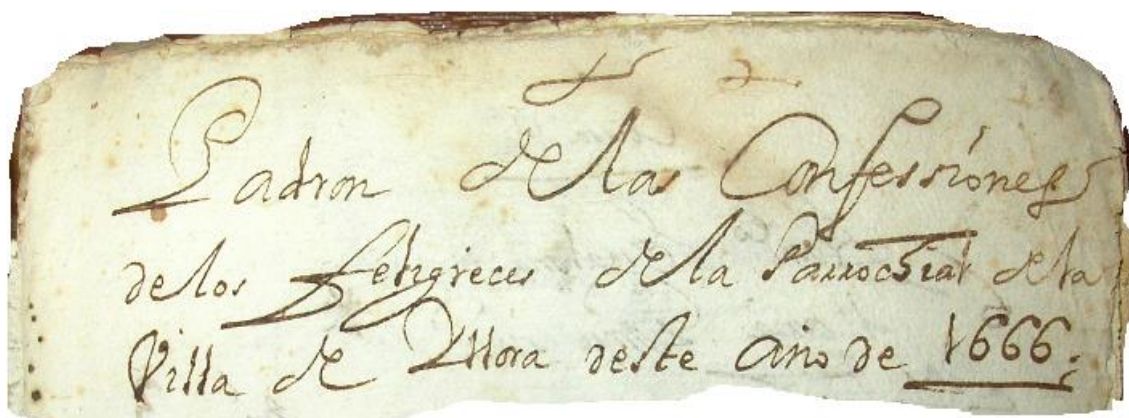 Padron de las Confessiones
de los feligreces de la Parrochial de la
Villa de Yllora deste año de 1666.